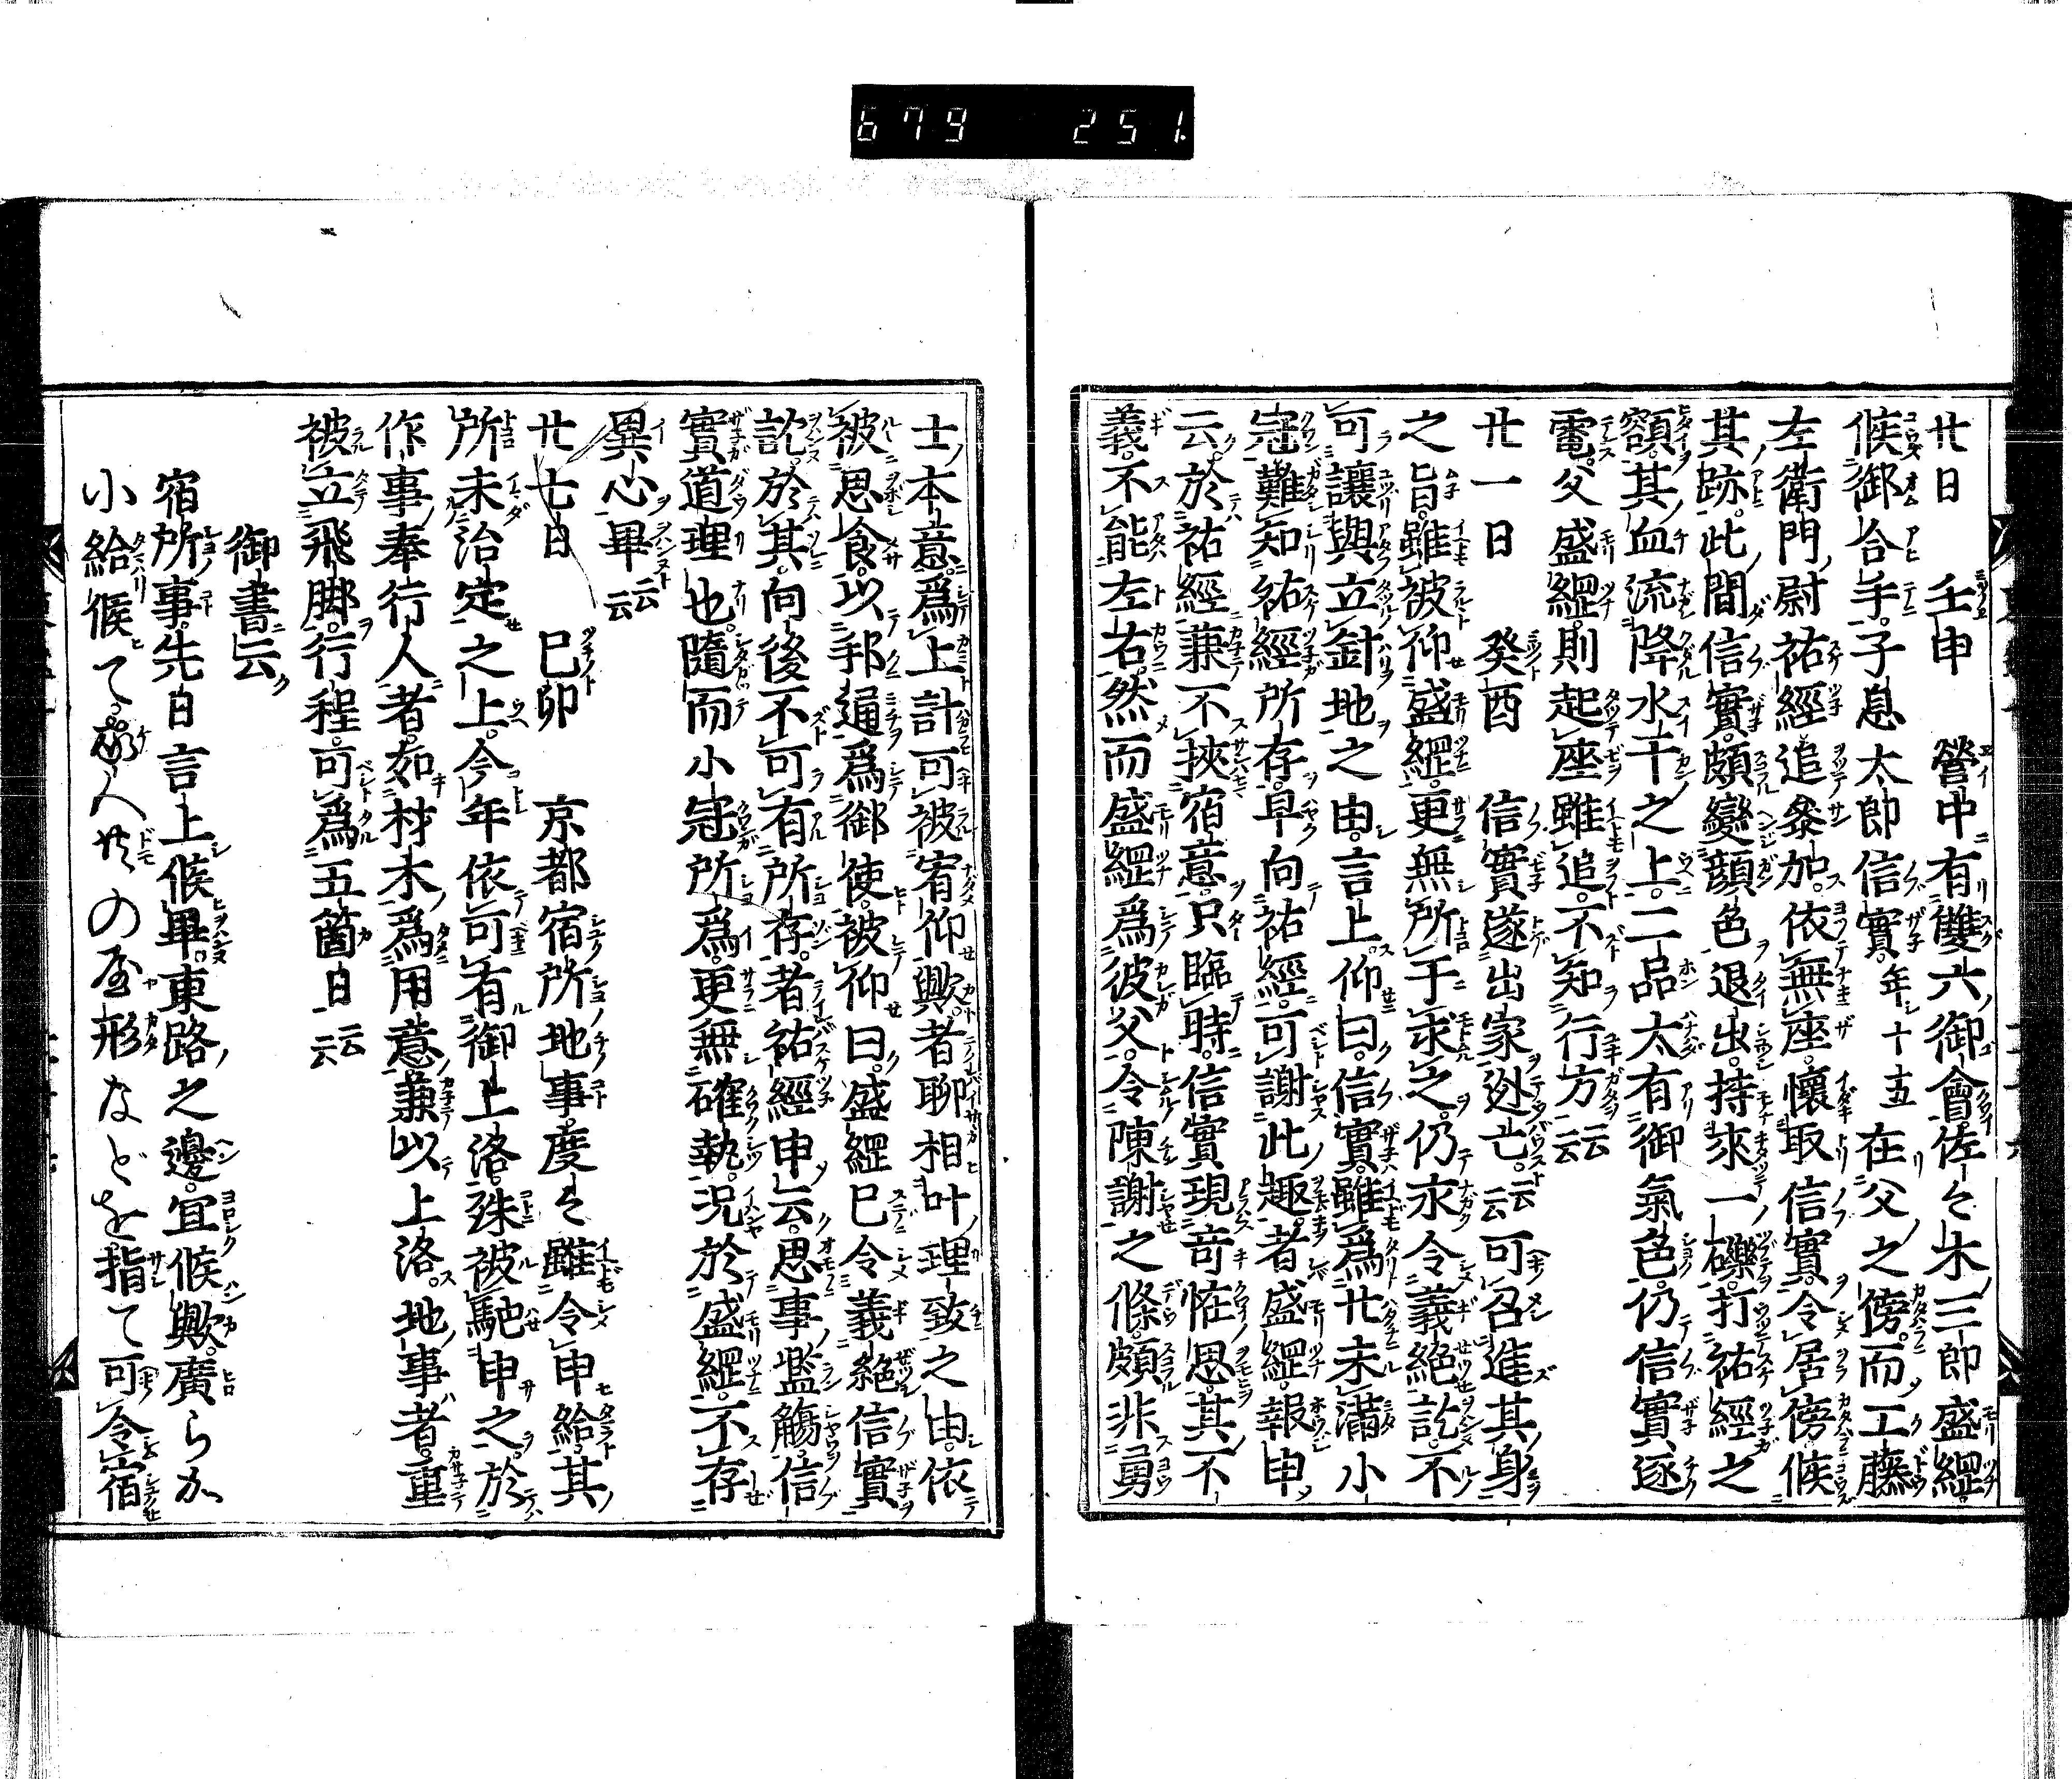 679 251
廿日　壬申　營中有雙六御會。佐々木三郎盛綱。
候御合手。子息太郎信實。年十五在父之傍。而工藤
左衛門尉祐經追參加。依無座。懷取信實。令居傍候
其跡。此間信實。頗變顔色退出。持來一礫。打祐經之
額。其血流降水干之上。二品太有御氣色。仍信實逐
電。父盛綱。則起座雖追。不知行方云云
廿一日　癸酉　信實遂出家逃亡。云云可召進其身
之旨。雖被仰盛綱。更無所于求之。仍永令義絶訖。不
可讓與立針地之由。言上。仰曰。信實。雖爲廿未滿小
冠難知。祐經所存。早向祐經。可謝此趣。者盛綱。報申
云。於祐經兼不挾宿意。只臨時。信實現奇恠思。其不
義。不能左右。然而盛綱爲彼父。令陳謝之條。頗非勇
士本意。爲上計可被宥仰歟。者聊相叶理致之由。依
被思食。以邦通爲御使。被仰曰。盛綱已令義絶信實
訖。於其向後不可有所存。者祐經申云。思事濫觴。信
實道理也。隨而小冠所爲。更無確執。况於盛綱。不存
異心畢云云
廿七日　己卯　京都宿所地事。度々雖令申給。其
所未治定之上。今年依可有御上洛。殊被馳申之。於
作事奉行人者。如材木爲用意。兼以上洛。地事者。重
被立飛脚。行程。可爲五箇日云云
御書云
宿所事。先日言上候畢。東路之邊。宜候歟。廣らか
小給候て。家人共の屋形などを指て可令宿